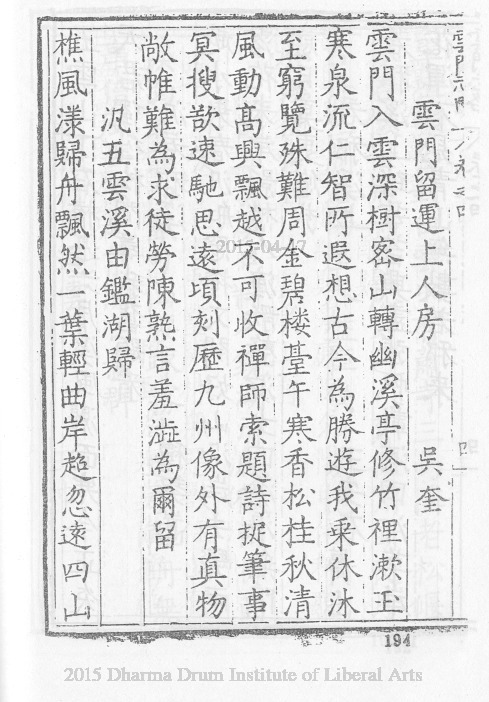 雲門留運上人房　吳奎
雲門入雲深樹密山轉幽溪亭修竹裡漱玉
寒泉流仁智所遐想古今為勝遊我来休沐
至窮覽殊難周金碧楼䑓午寒香松桂秋清
風動髙興飄越不可收禪師索題詩捉筆事
冥搜歆速馳思遠頃刻歷九州像外有真物
敞帷難為求徒勞陳熟言羞澁為爾留
汎五雲溪由鑑湖歸
樵風漾歸舟飄然一葉輕曲岸趂忽遠四山
194
2015-04-17
2015 Dharma Drum Institute of Liberal Arts